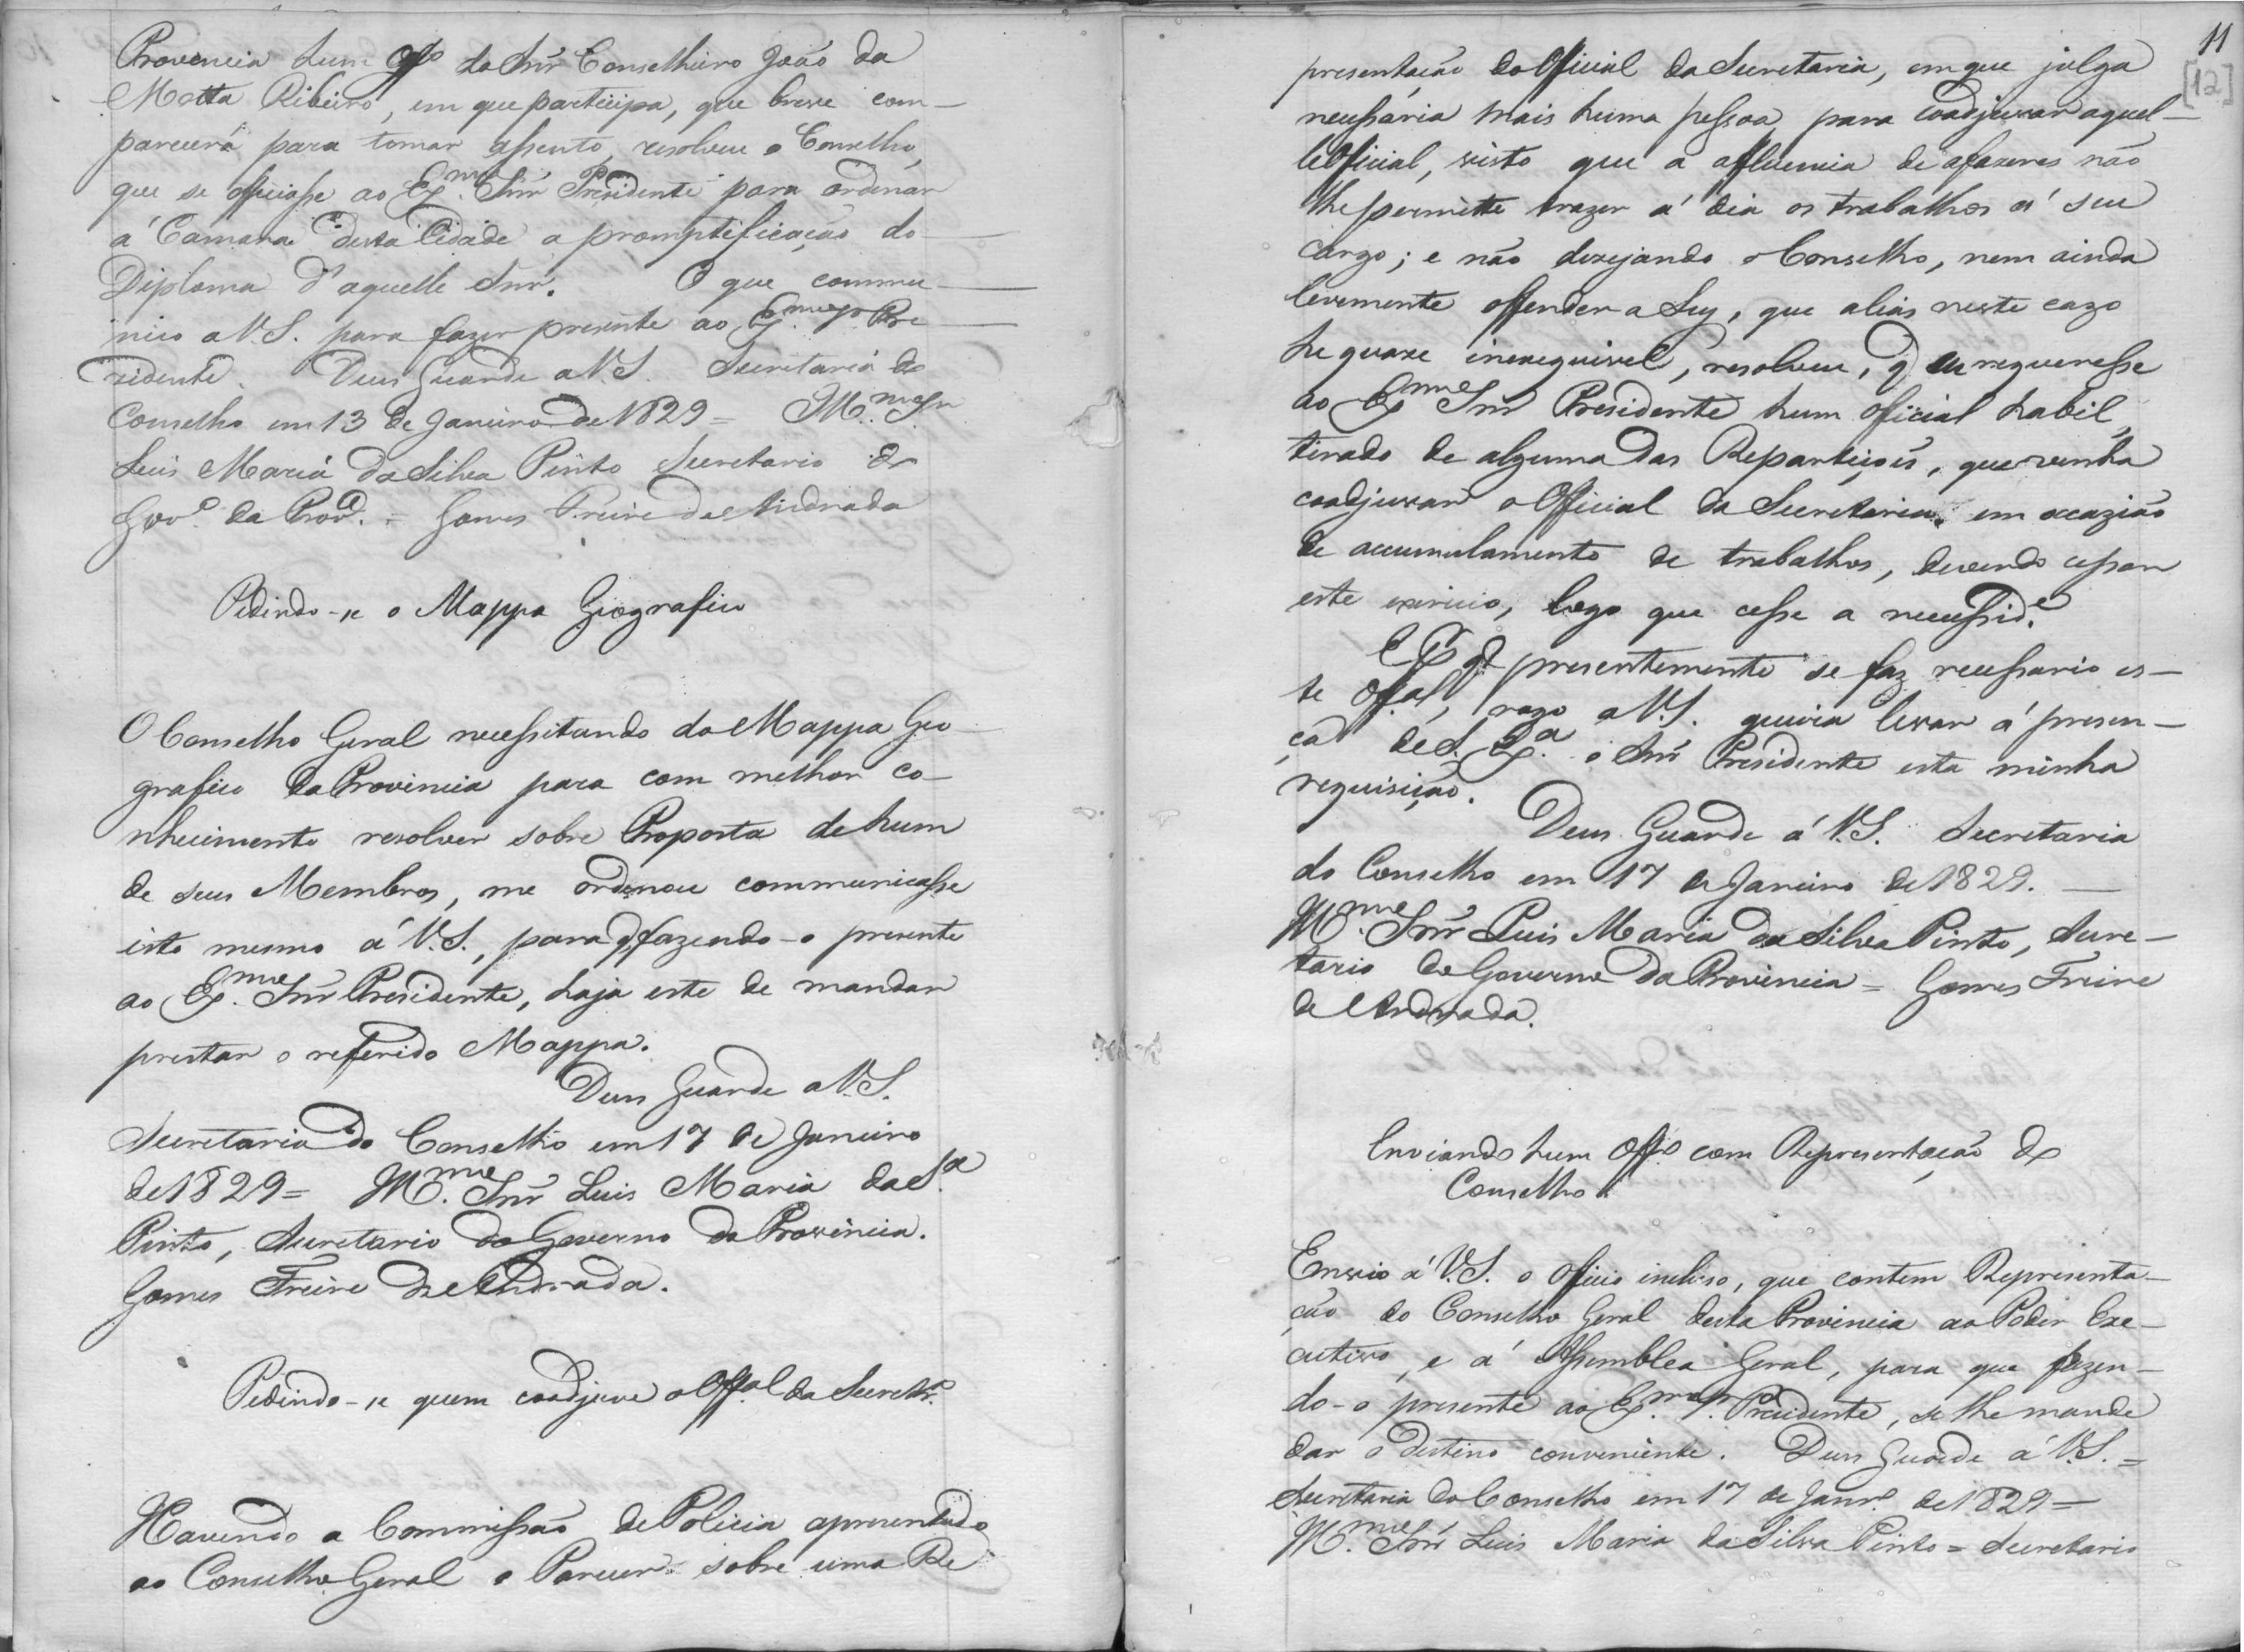 Provincia hum Offo do Snr Conselheiro João da
Motta Ribeiro, em que participa, que breve com-
parecerá para tomar assento, resolveu o Conselho,
que se officiasse ao Ex.mo Snr Presidente para ordenar
á Camara desta Cidade a promptificação do
Diploma d'aquelle Snr. O que commu-
nico a V.S. para fazer presente ao Ex.mo Sr. Pre-
zidente. Deus Guarde a V.S. Secretaria do
Conselho em 13 de Janeiro de 1829 = Ill.mo Snr
Luis Maria da Silva Pinto Secretario do
Gov.o da Prov.a = Gomes Freire de Andrada
Pedindo-se o Mappa Geografico
O Conselho Geral necessitando do Mappa Geo-
grafico da Provincia para com melhor co-
nhecimento resolver sobre Proposta de hum
de seus Membros, me ordenou communicasse
isto mesmo á V.S., para q fazendo-o presente
ao Ex.mo Snr Presidente, haja este de mandar
prestar o referido Mappa.
Deus Guarde a V.S.
Secretaria do Conselho em 17 de Janeiro
de 1829 = Ill.mo Snr Luis Maria da S.a
Pinto, Secretario do Governo da Provincia.
Gomes Freire de Andrada.
Pedindo-se quem coadjuve o Off.al da Secretr.a
Havendo a Commissão de Policia apresentado
ao Conselho Geral o Parecer sobre uma Re
11
[12]
presentação do Official da Secretaria, em que julga
necessaria mais huma pessoa para coadjuvar aquel-
le Official, visto que a affluencia de afazeres não
lhe permitte trazer á dia os trabalhos á seu
cargo; e não dezejando o Conselho, nem ainda
levemente offender a Ley, que alias neste cazo
he quaze inexequivel, resolveu, q se requeresse
ao Ex.mo Snr Presidente hum official habil,
tirado de alguma das Repartições, que venha
coadjuvar o Official da Secretaria em occazião
de accumulamento de trabalhos, devendo cessar
este exercicio, logo que cesse a necessid.e
E pq presentemente se faz necessario es-
te Off.al, rogo a V.S. queira levar á presen-
ça de S. Ex.a o Snr Presidente esta minha
requisição.
Deus Guarde á V.S. Secretaria
do Conselho em 17 de Janeiro de 1829. -
Ill.mo Snr Luis Maria da Silva Pinto, Secre-
tario do Governo da Provincia = Gomes Freire
de Andrada.
Enviando hum Offo com Representação do
Conselho
Envio á V.S. o Officio incluso, que contem Representa-
ção do Conselho Geral desta Provincia ao Poder Exe-
cutivo, e á Assemblea Geral, para que fazen-
do-o presente ao Ex.mo Sr. Presidente, se lhe mande
dar o destino conveniente. Deus Guarde á V.S. =
Secretaria do Conselho em 17 de Janr.o de 1829 =
Ill.mo Snr Luis Maria da Silva Pinto = Secretario